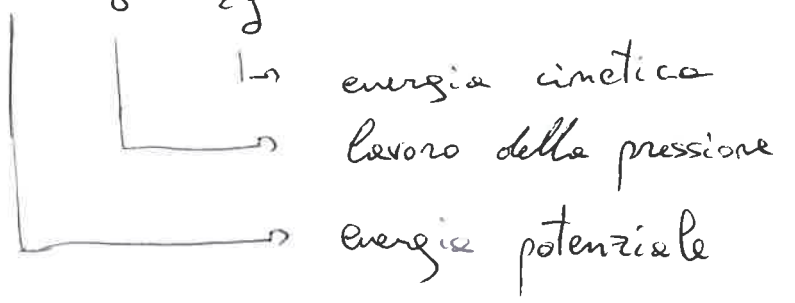 energia cinetica
lavoro della pressione
energia potenziale